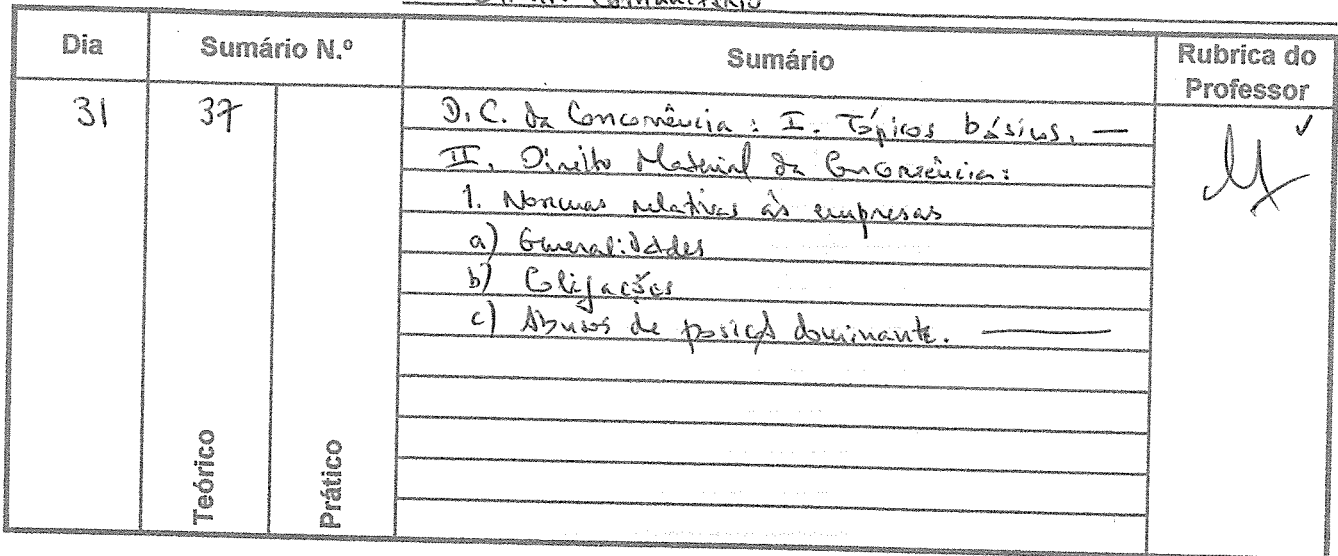 Comunitário
Dia
Sumário N.º
Sumário
Rubrica do
Professor
31
37
D.C. da Concorrência: I. Tópicos básicos. —
II. Direito Material da Concorrência:
1. Normas relativas às empresas
a) Generalidades
b) Coligações
c) Abusos de posição dominante. —
Teórico
Prático